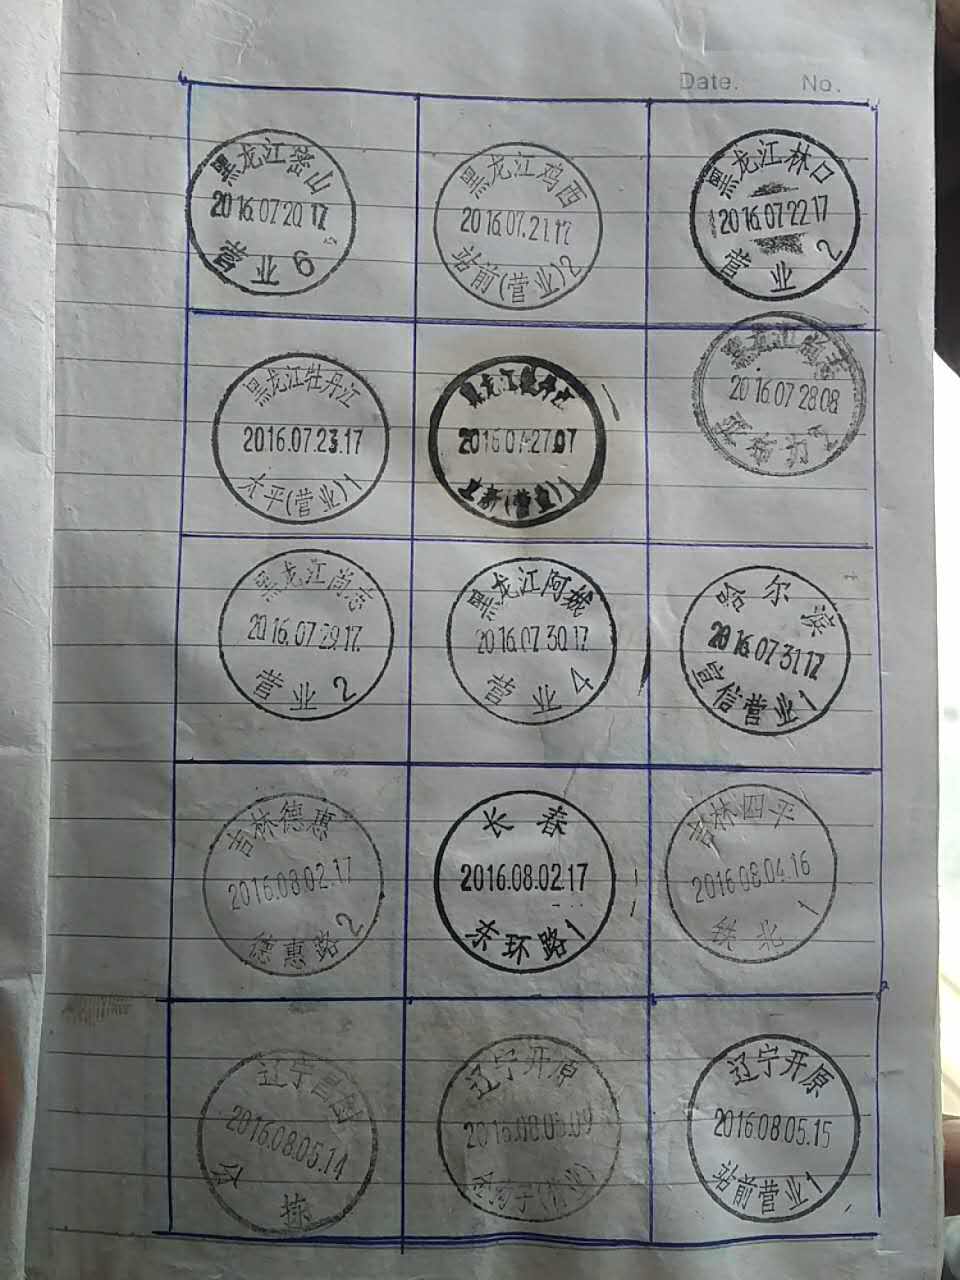 Date. No.
黑龙江密山
2016.07.20.17
营业 6
黑龙江鸡西
2016.07.21.17
站前(营业)2
黑龙江林口
2016.07.22.17
营业 2
黑龙江牡丹江
2016.07.23.17
太平(营业)1
黑龙江牡丹江
2016.07.27.07
立新(营业)1
黑龙江尚志
2016.07.28.08
黑龙江尚志
2016.07.29.17
营业 2
黑龙江阿城
2016.07.30.17
营业 4
哈尔滨
2016.07.31.17
营业1
吉林德惠
2016.08.02.17
德惠路2
长春
2016.08.02.17
东环路1
吉林四平
2016.08.04.16
铁北 1
辽宁昌图
2016.08.05.14
分拣
辽宁开原
(营业)
辽宁开原
2016.08.05.15
站前营业1